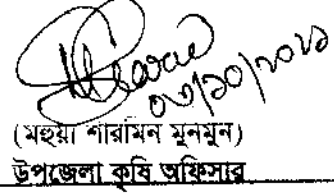 ০৩/১০/২০২১
(মহুয়া শারমিন মুনমুন)
উপজেলা কৃষি অফিসার